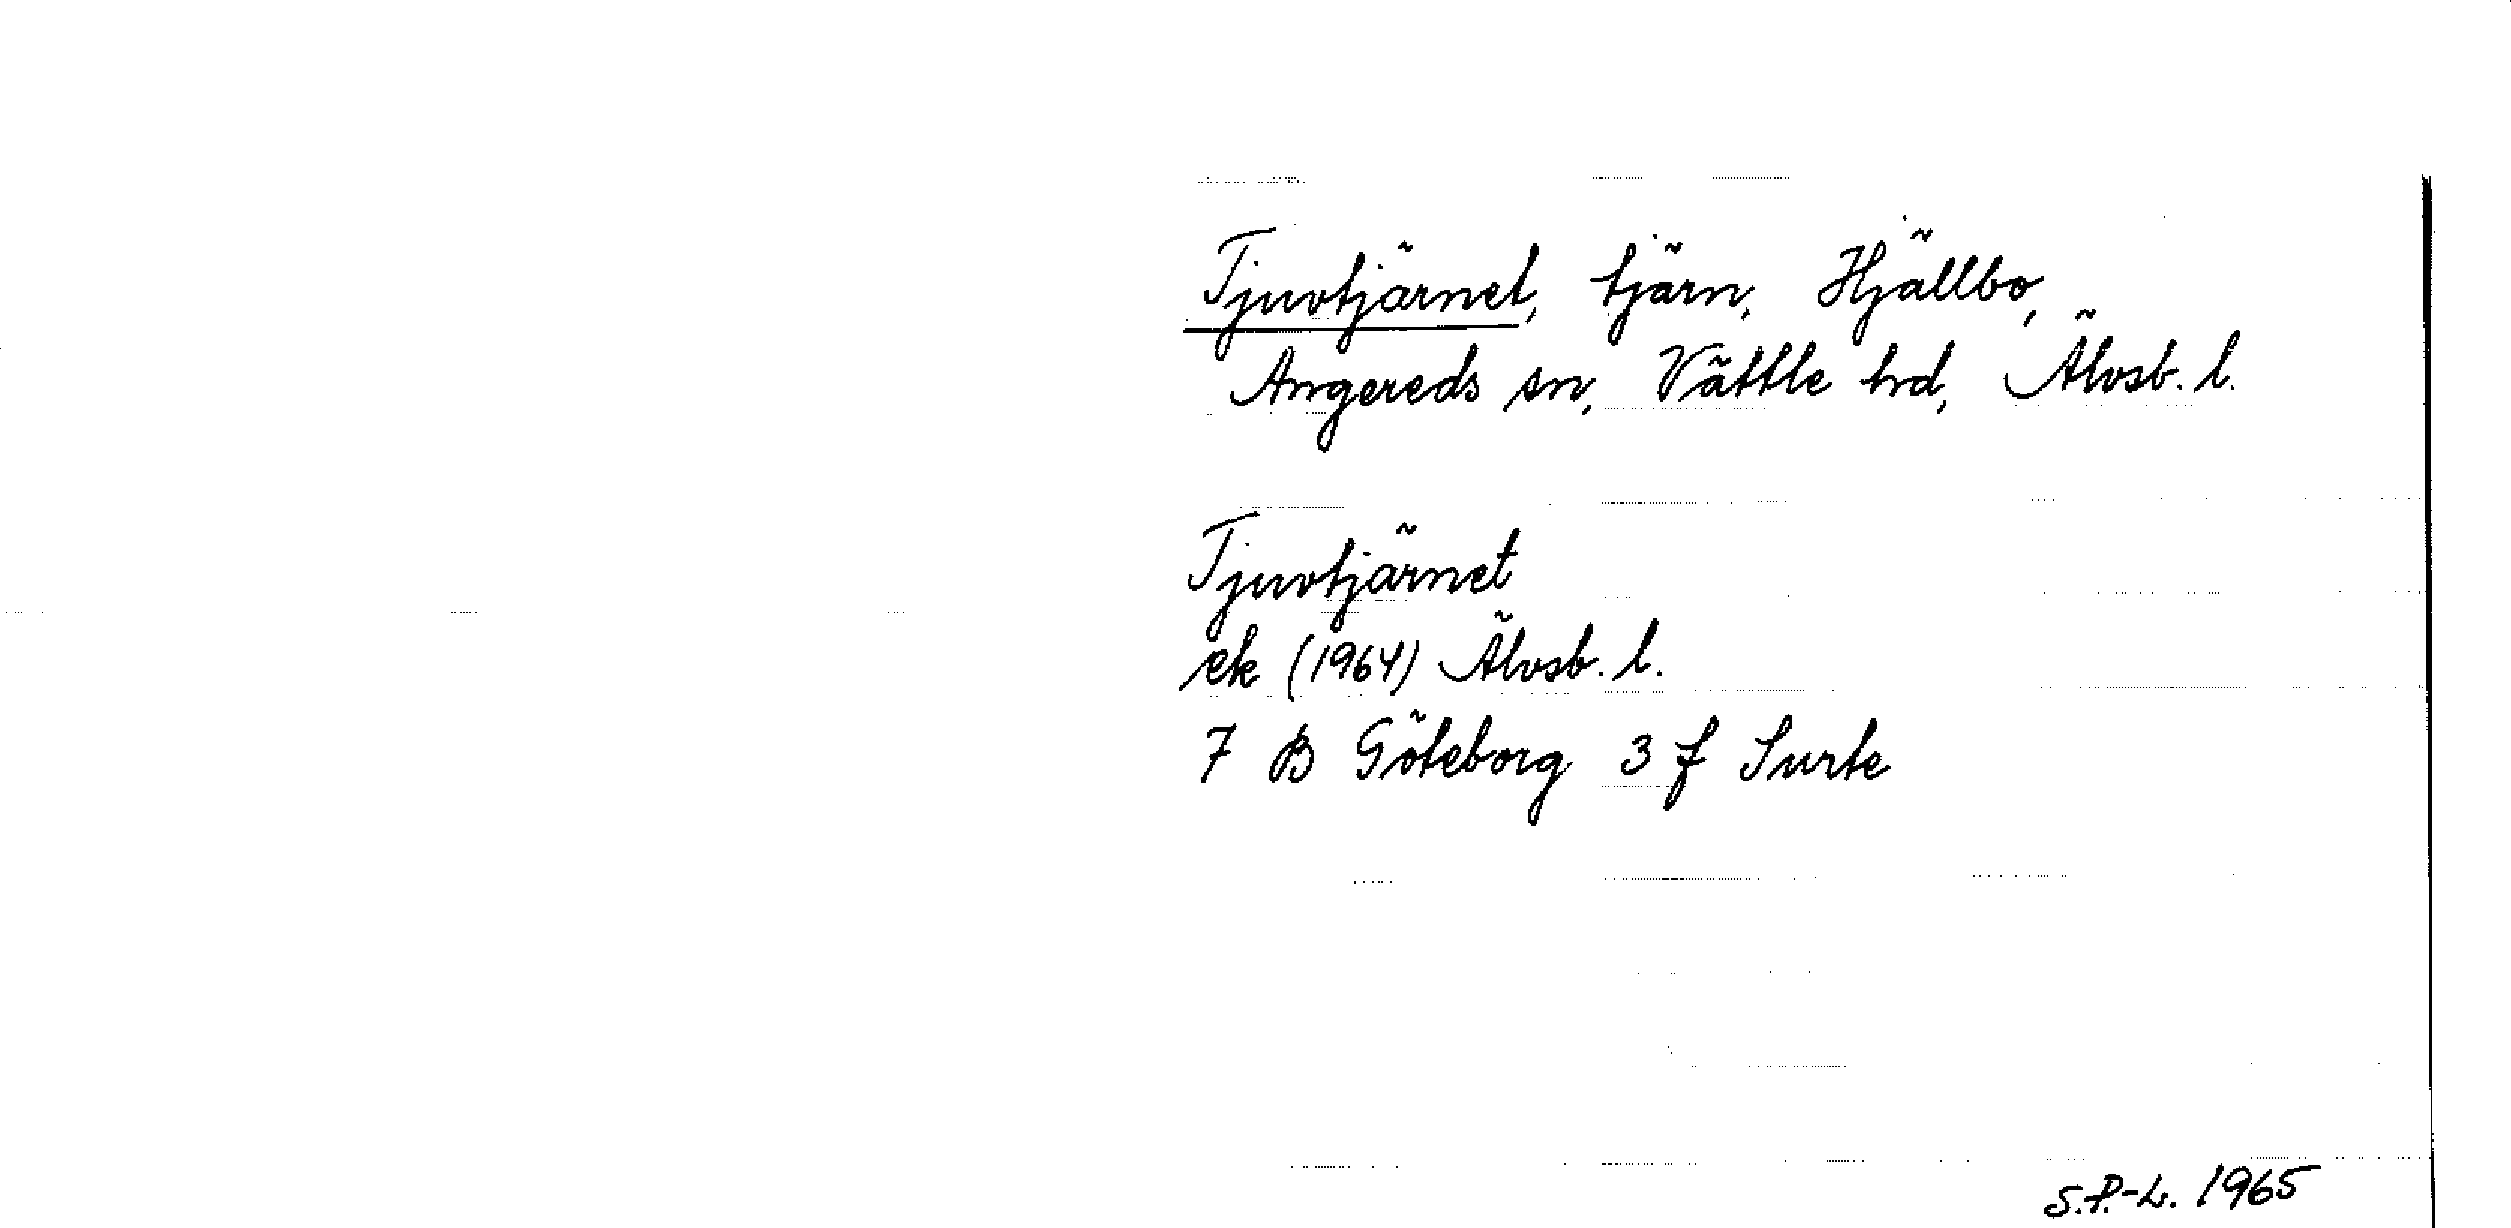 Tjuvtjärnet, tjärn, Hjällbo,
Angereds sn, Vättle hd, Älvsb. l.
Tjuvtjärnet
ek (1964) Älvsb. l.
7 B Göteborg 3 f Surte
S.P.-L. 1965